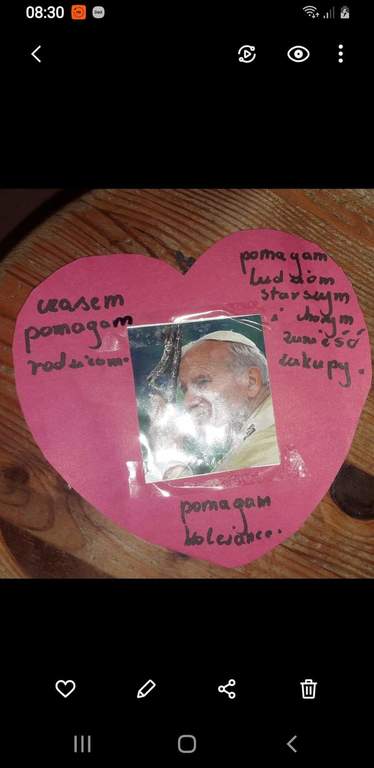 08:30
czasem
pomagam
rodzicom.
pomagam
ludziom
starszym
i chorym
znieść
zakupy.
pomagam
koleżance.